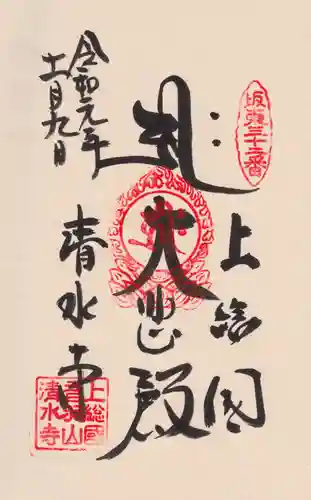 坂東三十二番
上総国
大悲殿
令和元年
十一月九日
清水寺
上総国
音羽山
清水寺